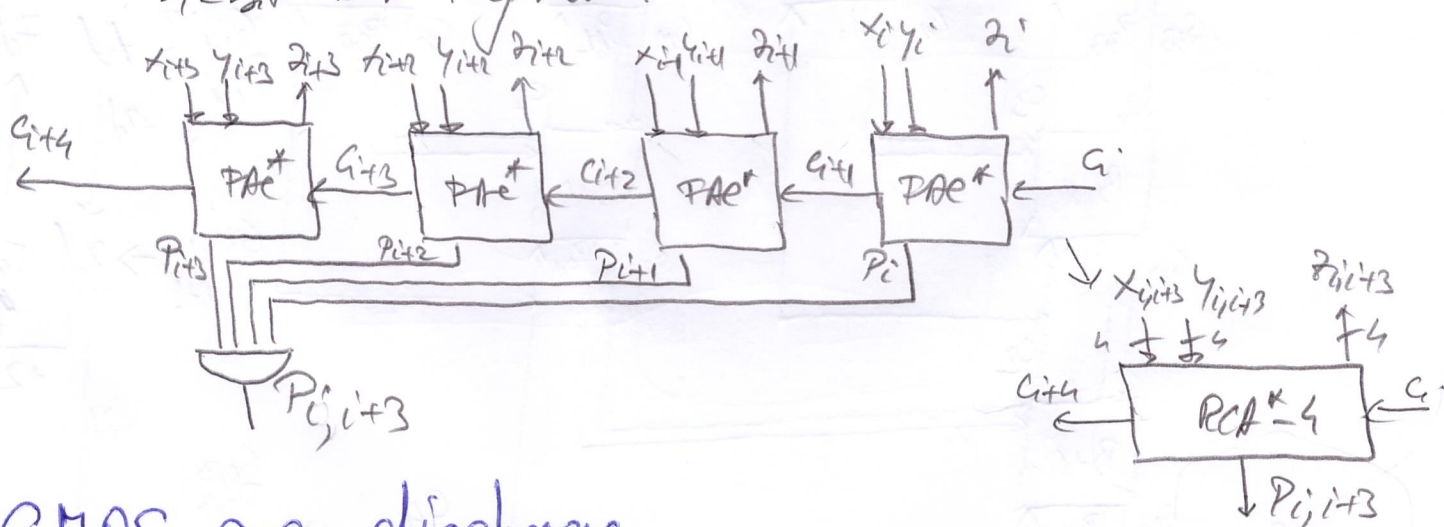 x_{i+3} y_{i+3} z_{i+3} x_{i+2} y_{i+2} z_{i+2} x_{i+1} y_{i+1} z_{i+1} x_i y_i z_i
c_{i+4} FAC* c_{i+3} FAC* c_{i+2} FAC* c_{i+1} FAC* c_i
P_{i+3} P_{i+2} P_{i+1} P_i
x_{i,i+3} y_{i,i+3} z_{i,i+3}
4 4 4
P_{i,i+3}
c_{i+4} RCA*-4 c_i
P_{i,i+3}